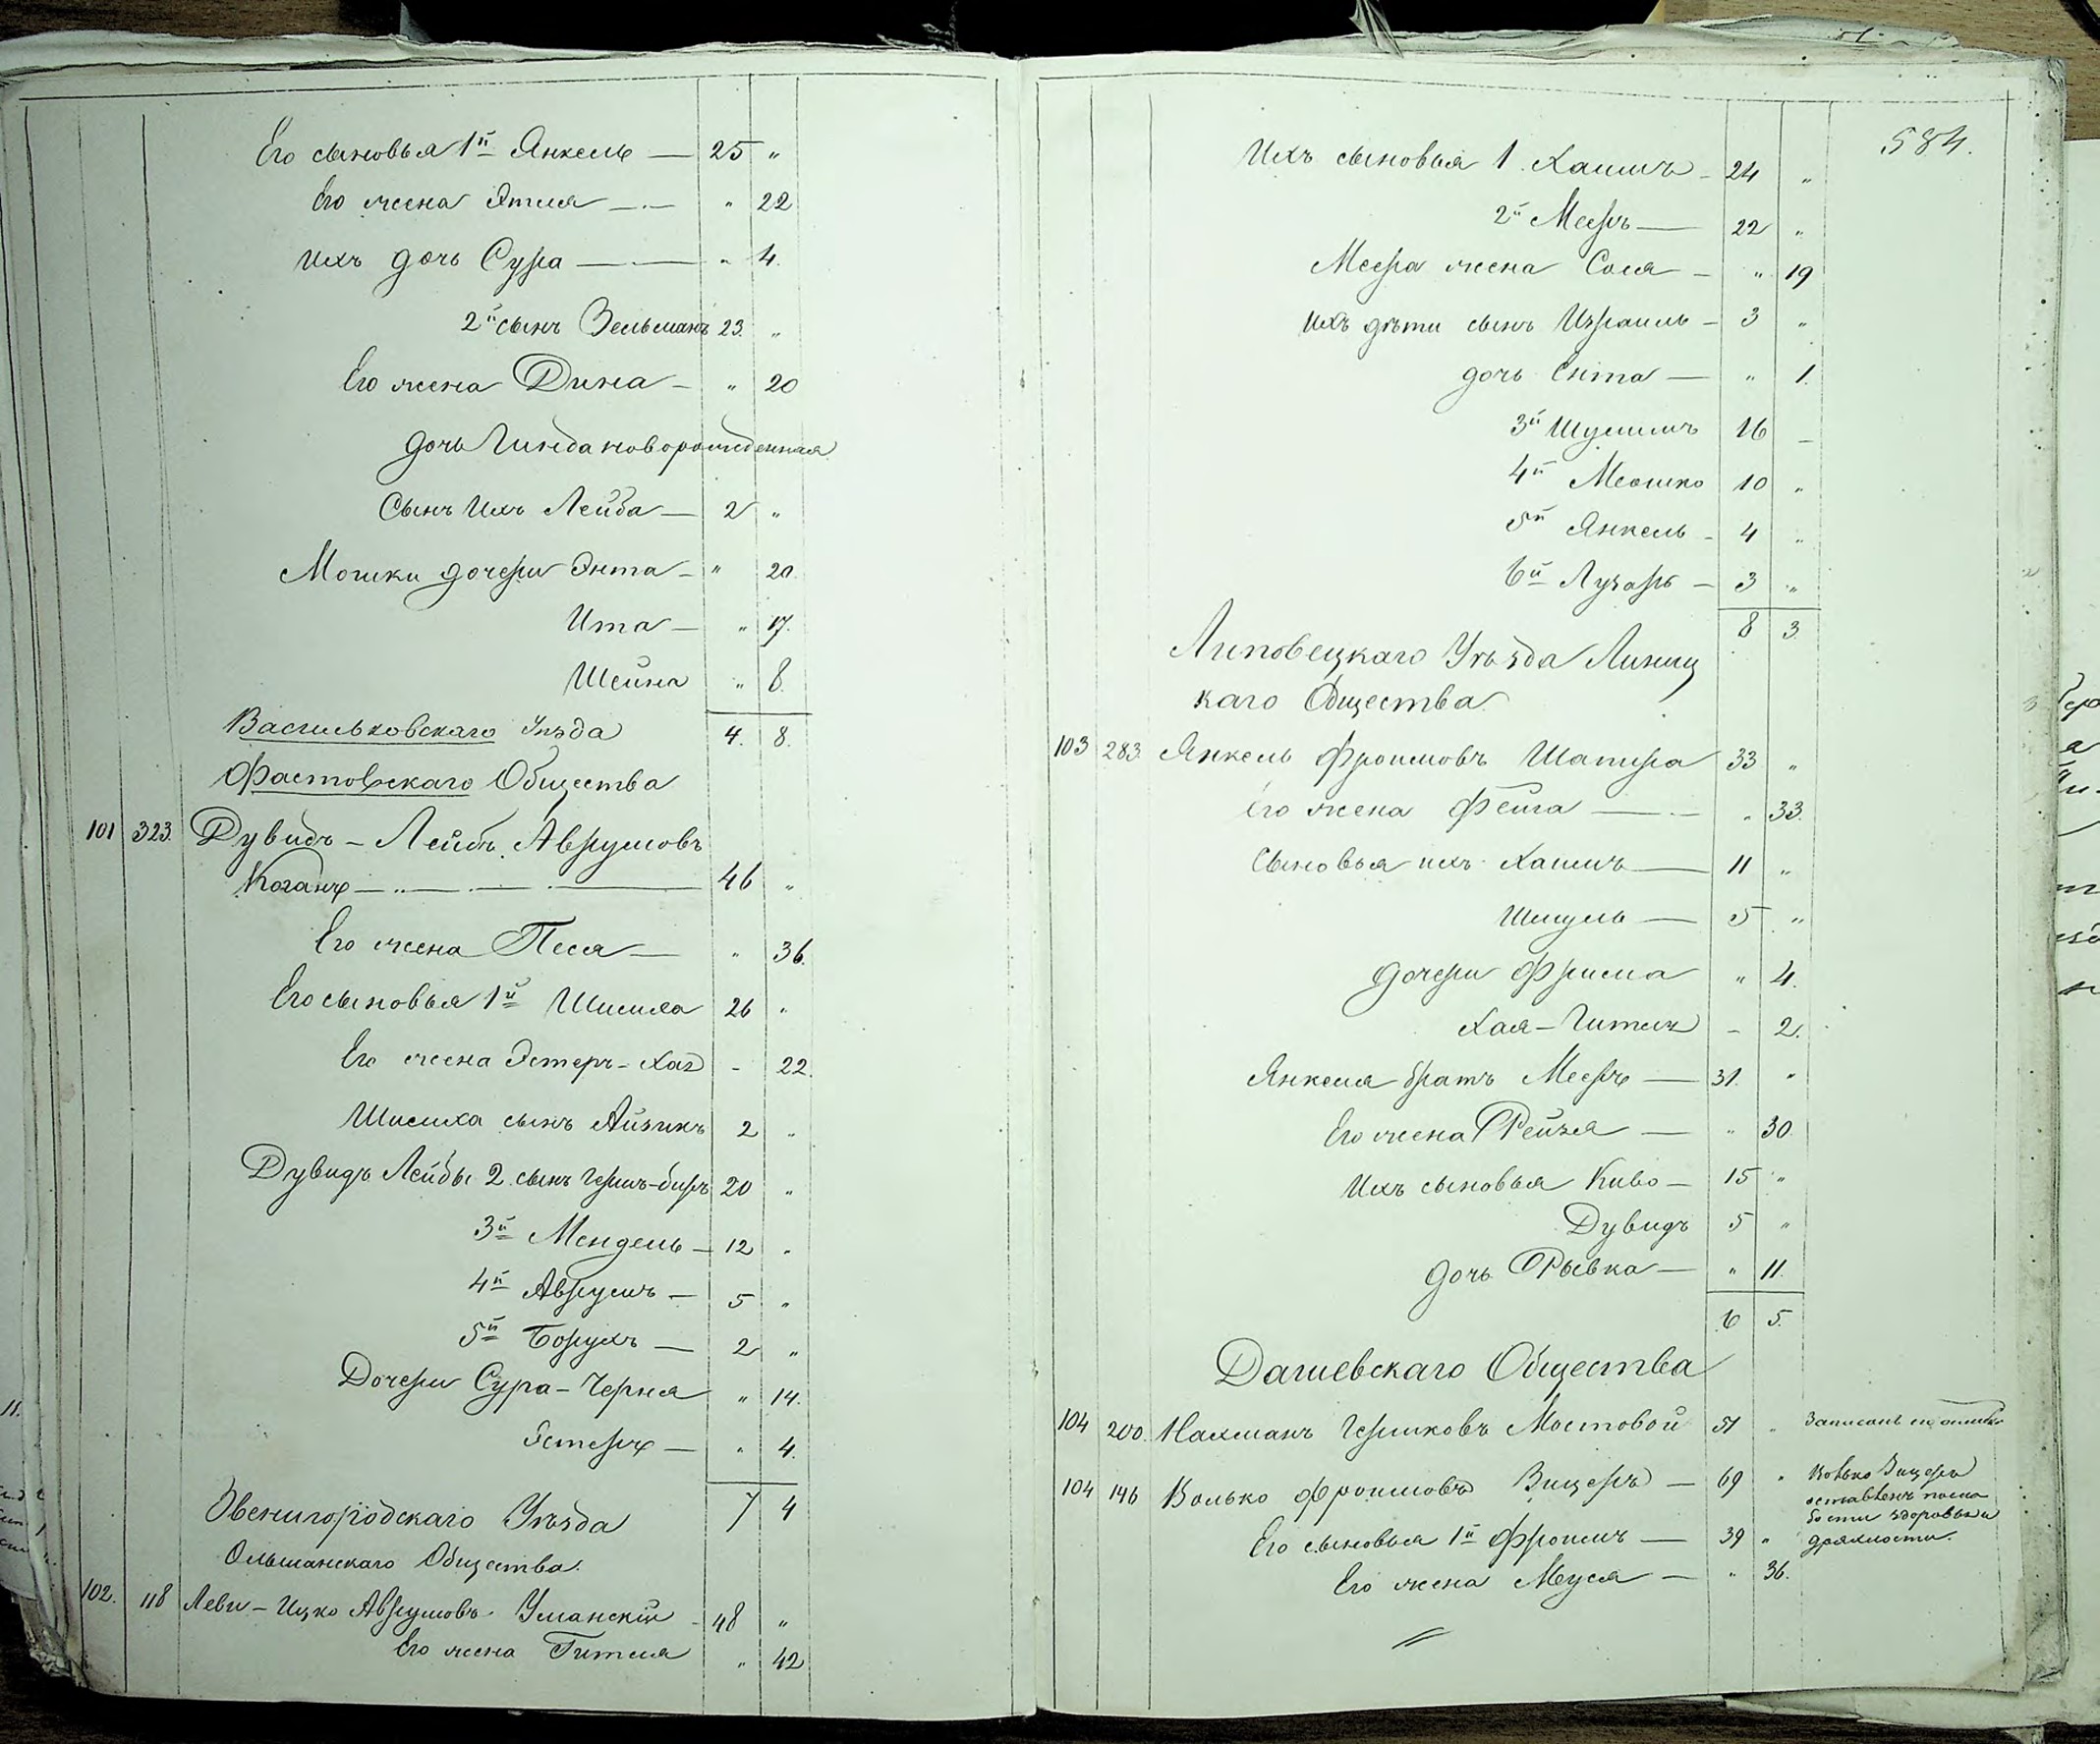 Его сыновья 1й Янкель — 25 "
Его жена Этля — " 22
Ихъ дочь Сура — " 4.
2й сынъ Зельманъ 23. "
Его жена Дина — " 20
дочь Гинда новорожденная
Сынъ Ихъ Лейба — 2 "
Мошки дочери Энта — " 20.
Ита — " 17.
Шейна " 8.
Васильковскаго Уѣзда 4. 8.
Фастовскаго Общества
101 323. Дувидъ - Лейбъ Аврумовъ
Коганъ — 46 "
Его жена Песя — " 36.
Его сыновья 1й Шимха 26 "
Его жена Эстеръ - Хая - 22.
Шимха сынъ Айзикъ 2 "
Дувидъ Лейбы 2. сынъ Гершъ-беръ 20 "
3й Мендель — 12 "
4й Аврумъ — 5 "
5й Борухъ — 2 "
Дочери Сура - Черня " 14.
Эстеръ — " 4.
Звенигородскаго Уѣзда 7 4
Ольшанскаго Общества.
102. 118 Леви - Ицко Аврумовъ Уманскій - 48 "
Его жена Гитля " 42
584.
Ихъ сыновья 1. Хаимъ - 24 "
2й Мееръ — 22 "
Меера жена Сося — " 19
Ихъ дѣти сынъ Израиль — 3 "
дочь Ента — " 1.
3й Шулимъ 16 —
4й Мошко 10 "
5й Янкель - 4 "
6й Лузаръ — 3 "
8 3.
Липовецкаго Уѣзда Линиц
каго Общества
103 283. Янкель Фроимовъ Шапира 33 "
Его жена Фейга — " 33.
Сыновья ихъ Хаимъ — 11 "
Шмуль — 5 "
дочери Фрима " 4.
Хая - Гитля - 2.
Янкеля братъ Мееръ — 31. "
Его жена Рейзя — " 30.
Ихъ сыновья Киво — 15 "
Дувидъ 5 "
дочь Рывка — " 11.
6 5.
Дашевскаго Общества
104 200. Нахманъ Гершковъ Мостовой 51 " Записанъ по ошибке
104 146 Волько Фроимовъ Зицеръ — 69 " Волько Зицеръ
оставленъ по сла
бости здоровья и
Его сыновья 1й Фроимъ — 39 " дряхлости.
Его жена Муся — " 36.